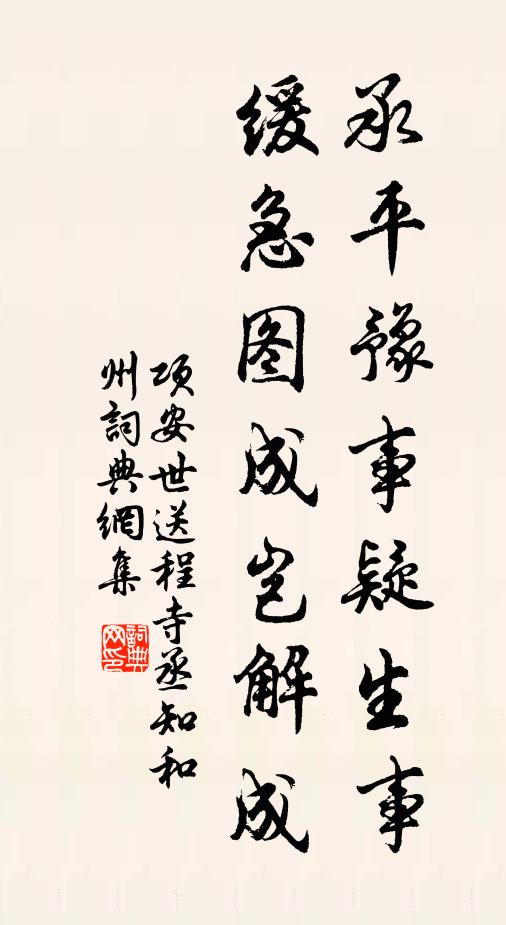 承平豫事疑生事
缓急图成岂解成
项安世送程寺丞知和
州詞典網集
詞典
网印